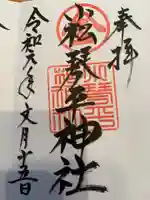 奉拝
小松琴平神社
令和六年文月十五日